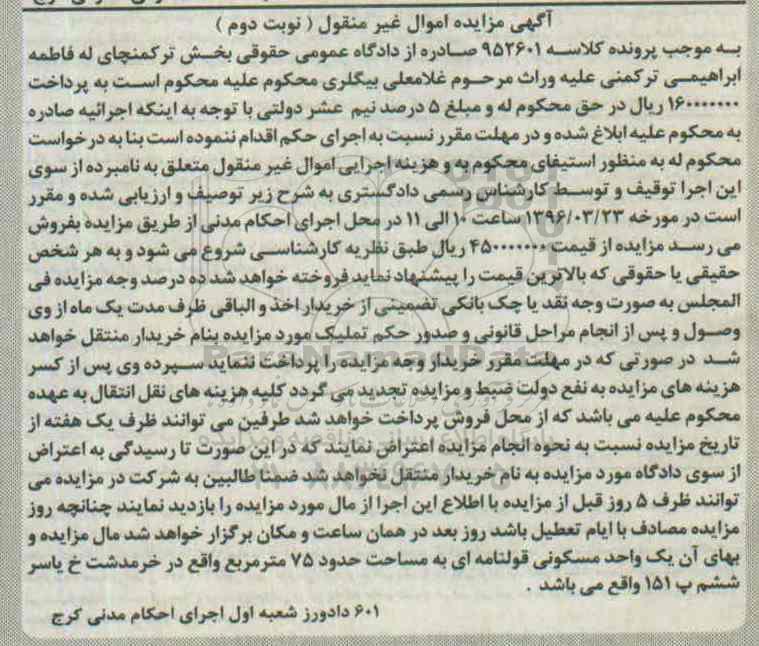 آگهی مزایده اموال غیر منقول ( نوبت دوم )
به موجب پرونده کلاسه ۹۵۲۶۰۱ صادره از دادگاه عمومی حقوقی بخش ترکمنچای له فاطمه
ابراهیمی ترکمنی علیه وراث مرحوم غلامعلی بیگلری محکوم علیه محکوم است به پرداخت
۱۶۰۰۰۰۰۰۰ ریال در حق محکوم له و مبلغ ۵ درصد نیم عشر دولتی با توجه به اینکه اجرائیه صادره
به محکوم علیه ابلاغ شده و در مهلت مقرر نسبت به اجرای حکم اقدام ننموده است بنا به درخواست
محکوم له به منظور استیفای محکوم به و هزینه اجرایی اموال غیر منقول متعلق به نامبرده از سوی
این اجرا توقیف و توسط کارشناس رسمی دادگستری به شرح زیر توصیف و ارزیابی شده و مقرر
است در مورخه ۱۳۹۶/۰۳/۲۳ ساعت ۱۰ الی ۱۱ در محل اجرای احکام مدنی از طریق مزایده بفروش
می رسد مزایده از قیمت ۴۵۰۰۰۰۰۰۰ ریال طبق نظریه کارشناسی شروع می شود و به هر شخص
حقیقی یا حقوقی که بالاترین قیمت را پیشنهاد نماید فروخته خواهد شد ده درصد وجه مزایده فی
المجلس به صورت وجه نقد یا چک بانکی تضمینی از خریدار اخذ و الباقی ظرف مدت یک ماه از وی
وصول و پس از انجام مراحل قانونی و صدور حکم تملیک مورد مزایده بنام خریدار منتقل خواهد
شد در صورتی که در مهلت مقرر خریدار وجه مزایده را پرداخت ننماید سپرده وی پس از کسر
هزینه های مزایده به نفع دولت ضبط و مزایده تجدید می گردد کلیه هزینه های نقل انتقال به عهده
محکوم علیه می باشد که از محل فروش پرداخت خواهد شد طرفین می توانند ظرف یک هفته از
تاریخ مزایده نسبت به نحوه انجام مزایده اعتراض نمایند که در این صورت تا رسیدگی به اعتراض
از سوی دادگاه مورد مزایده به نام خریدار منتقل نخواهد شد ضمنا طالبین به شرکت در مزایده می
توانند ظرف ۵ روز قبل از مزایده با اطلاع این اجرا از مال مورد مزایده را بازدید نمایند چنانچه روز
مزایده مصادف با ایام تعطیل باشد روز بعد در همان ساعت و مکان برگزار خواهد شد مال مزایده و
بهای آن یک واحد مسکونی قولنامه ای به مساحت حدود ۷۵ مترمربع واقع در خرمدشت خ یاسر
ششم پ ۱۵۱ واقع می باشد .
۶۰۱ دادورز شعبه اول اجرای احکام مدنی کرج